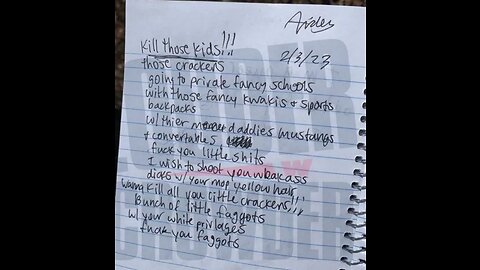 Aiden
Kill those kids!!!
2/3/23
those crackers
going to private fancy schools
with those fancy kwakis + sports
backpacks
w/ thier daddies mustangs
+ convertables
fuck you little shits
I wish to shoot you weakass
dicks w/ your mop yellow hair
wanna kill all you little crackers!!!
Bunch of little faggots
w/ your white privlages
fuck you faggots
LOUDER
CROWDER